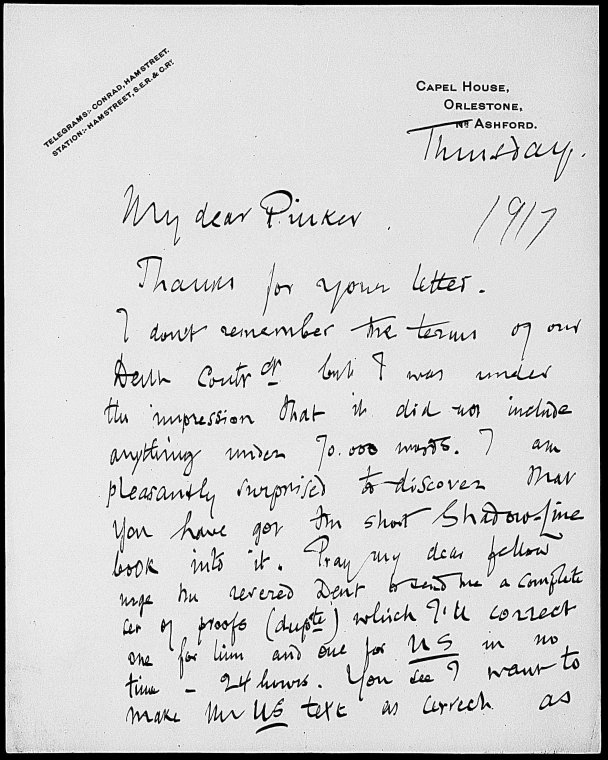 TELEGRAMS:- CONRAD, HAMSTREET.
STATION:- HAMSTREET, S.E.R. & C.RY.
CAPEL HOUSE,
ORLESTONE,
NR ASHFORD.
Thursday.
1917
My dear Pinker.
Thanks for your letter.
I don't remember the terms of our
Dent Contrct but I was under
the impression that it did not include
anything under 70.000 words. I am
pleasantly surprised to discover that
you have got the short Shadow-Line
book into it. Pray my dear fellow
urge the revered Dent to send me a complete
set of proofs (dupte) which I'll correct
one for him and one for US in no
time - 24 hours. You see I want to
make the US text as correct as